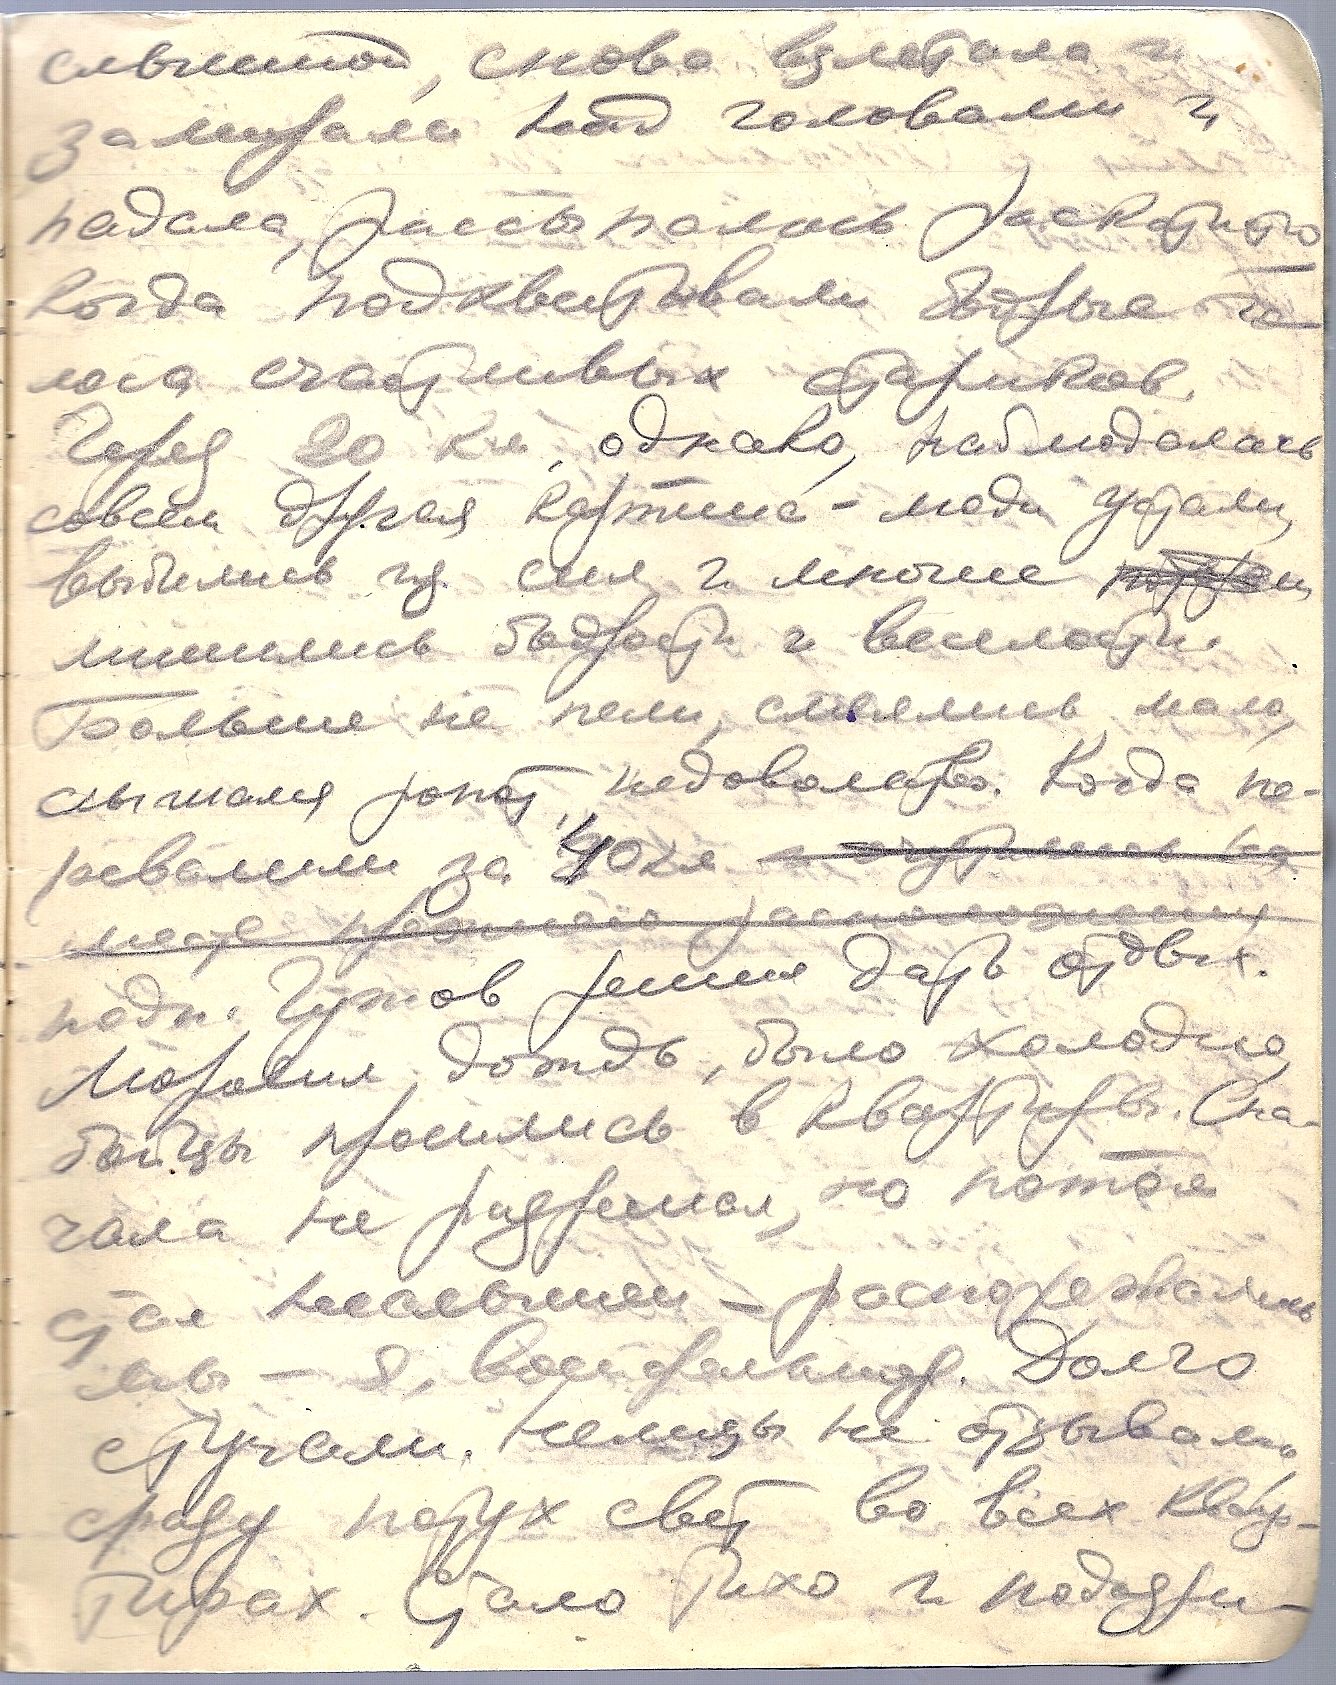 слышной, снова взлетала и
замирала над головами и
падала, рассыпалась раскатисто
когда подхватывали бодрые го-
лоса счастливых стариков.
Через 20 км, однако, наблюдалась
совсем другая картина – люди устали,
выбились из сил и многие
лишились бодрости и веселости.
Больше не пели, смеялись мало,
слышался ропот, недовольство. Когда пе-
ревалили за 40 км и очутились на
месте прежнего расположения
подп. Чужов решил дать отдых.
Моросил дождь, было холодно,
бойцы просились в квартиры. Сна-
чала не разрешал, но потом
стал
мы – я, Долго
стучали. Немцы не отзывались,
сразу потух свет во всех квар-
тирах. Стало тихо и подозри-